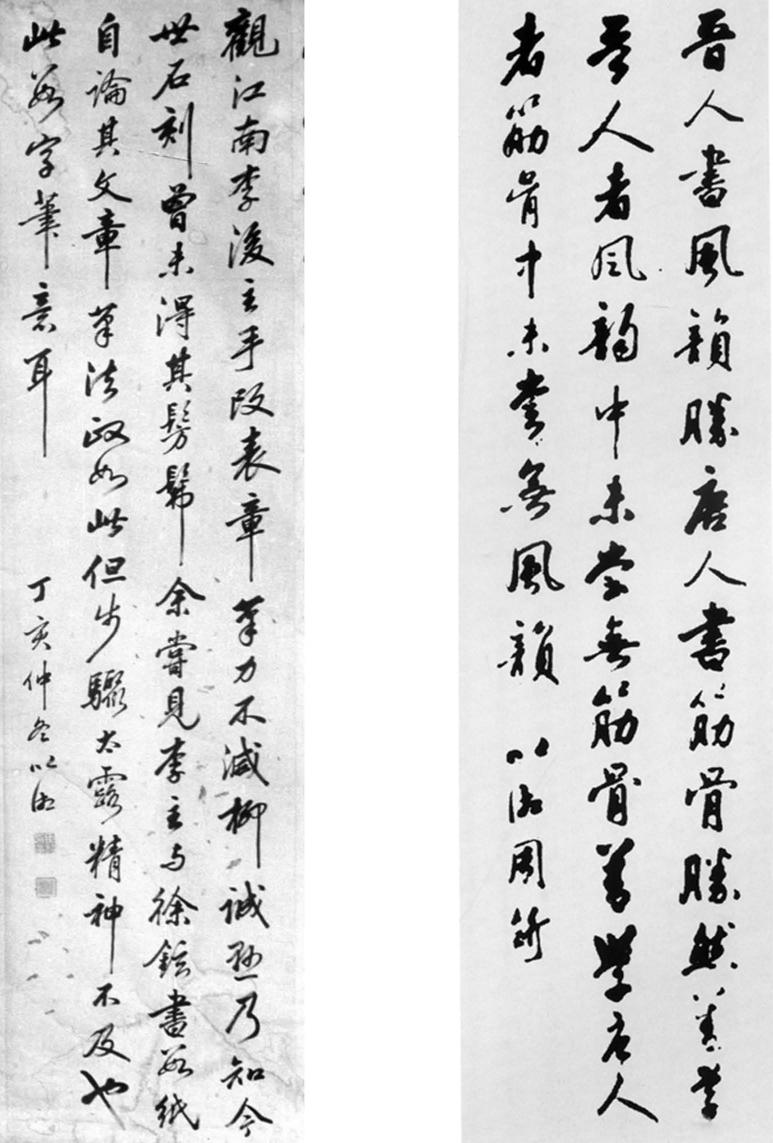 晉人書風韻勝唐人書筋骨勝然善學
晉人者風韻中未嘗無筋骨善學唐人
者筋骨中未嘗無風韻 以湘周
觀江南李後主手改表章筆力不減柳誠懸乃知今
世石刻曾未得其髣髴余嘗見李主与徐鉉書數紙
自論其文章筆法政如此但步驟太露精神不及也
此數字筆意耳 丁亥仲冬以湘